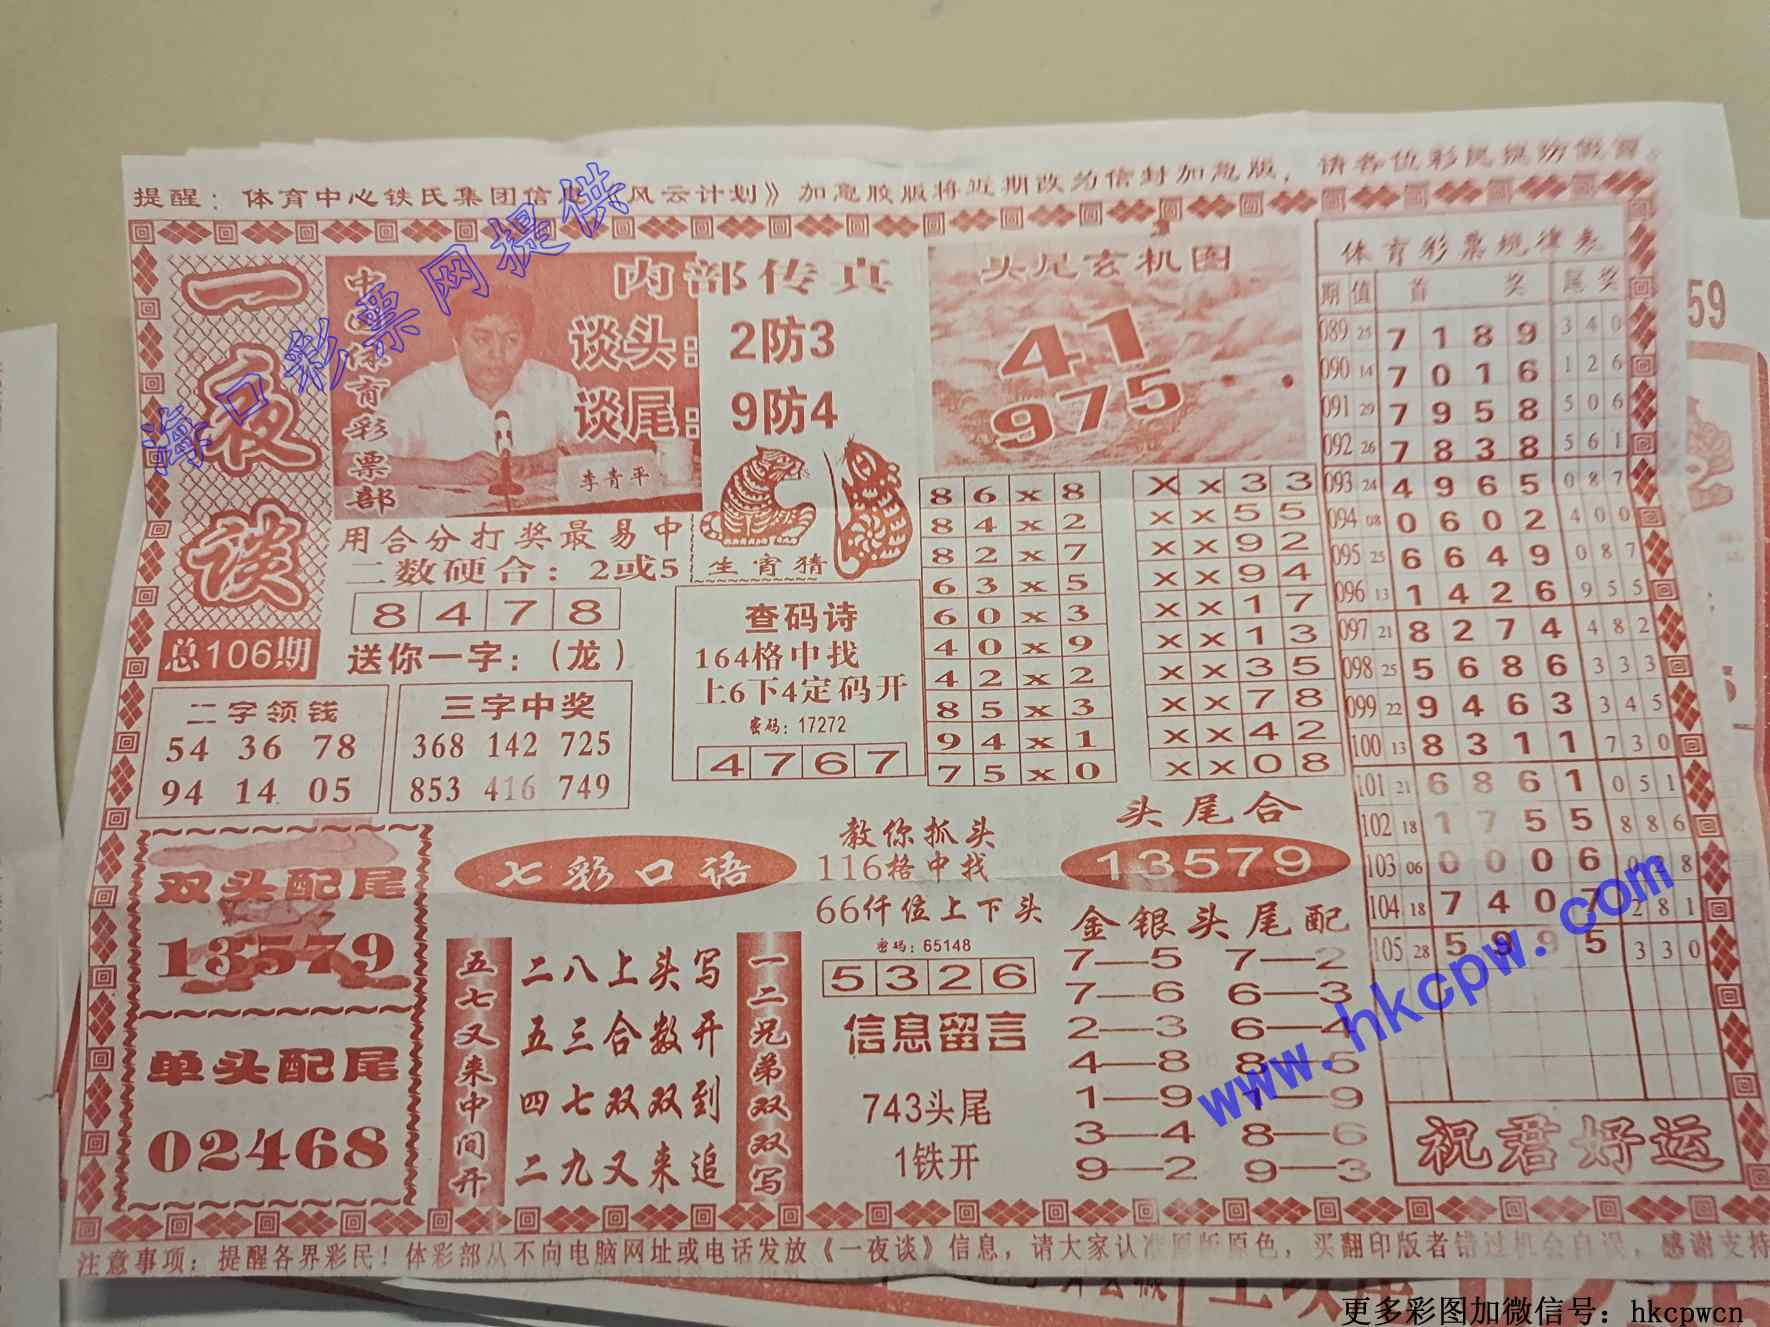 提醒：体育中心铁氏集团信息《风云计划》加急胶版将近期改约信封加急版，请各位彩民提防假冒。
海口彩票网提供
一夜谈
总106期
中国体育彩票部
内部传真
谈头：2防3
谈尾：9防4
李青平
用合分打奖最易中
二数硬合：2或5
8 4 7 8
送你一字：（龙）
生宵猜
二字领钱
54 36 78
94 14 05
三字中奖
368 142 725
853 416 749
查码诗
164格中找
上6下4定码开
密码：17272
4 7 6 7
头尾玄机图
41
975
8 6 x 8
8 4 x 2
8 2 x 7
6 3 x 5
6 0 x 3
4 0 x 9
4 2 x 2
8 5 x 3
9 4 x 1
7 5 x 0
x x 3 3
x x 5 5
x x 9 2
x x 9 4
x x 1 7
x x 1 3
x x 3 5
x x 7 8
x x 4 2
x x 0 8
体育彩票规律表
期 值 首 奖 尾 奖
089 25 7 1 8 9 3 4 0
090 14 7 0 1 6 1 2 6
091 29 7 9 5 8 5 0 6
092 26 7 8 3 8 5 6 1
093 24 4 9 6 5 0 8 7
094 08 0 6 0 2 4 0 0
095 25 6 6 4 9 0 8 7
096 13 1 4 2 6 9 5 5
097 21 8 2 7 4 4 8 2
098 25 5 6 8 6 3 3 3
099 22 9 4 6 3 3 4 5
100 13 8 3 1 1 7 3 0
101 21 6 8 6 1 0 5 1
102 18 1 7 5 5 8 8 6
103 06 0 0 0 6 0 2 8
104 18 7 4 0 7 2 8 1
105 28 5 9 9 5 3 3 0
祝君好运
双头配尾
13579
单头配尾
02468
七彩口语
五七又来中间开
二八上头写
五三合数开
四七双双到
二九又来追
一二兄弟双双写
教你抓头
116格中找
66仟位上下头
密码：65148
5 3 2 6
信息留言
743头尾
1铁开
头尾合
13579
金银头尾配
7—5 7—2
7—6 6—3
2—3 6—4
4—8 8—5
1—9 1—9
3—4 8—6
9—2 9—3
www.hkcpw.com
注意事项：提醒各界彩民！体彩部从不向电脑网址或电话发放《一夜谈》信息，请大家认准原版原色，买翻印版者错过机会自误，感谢支持
59
更多彩图加微信号：hkcpwcn